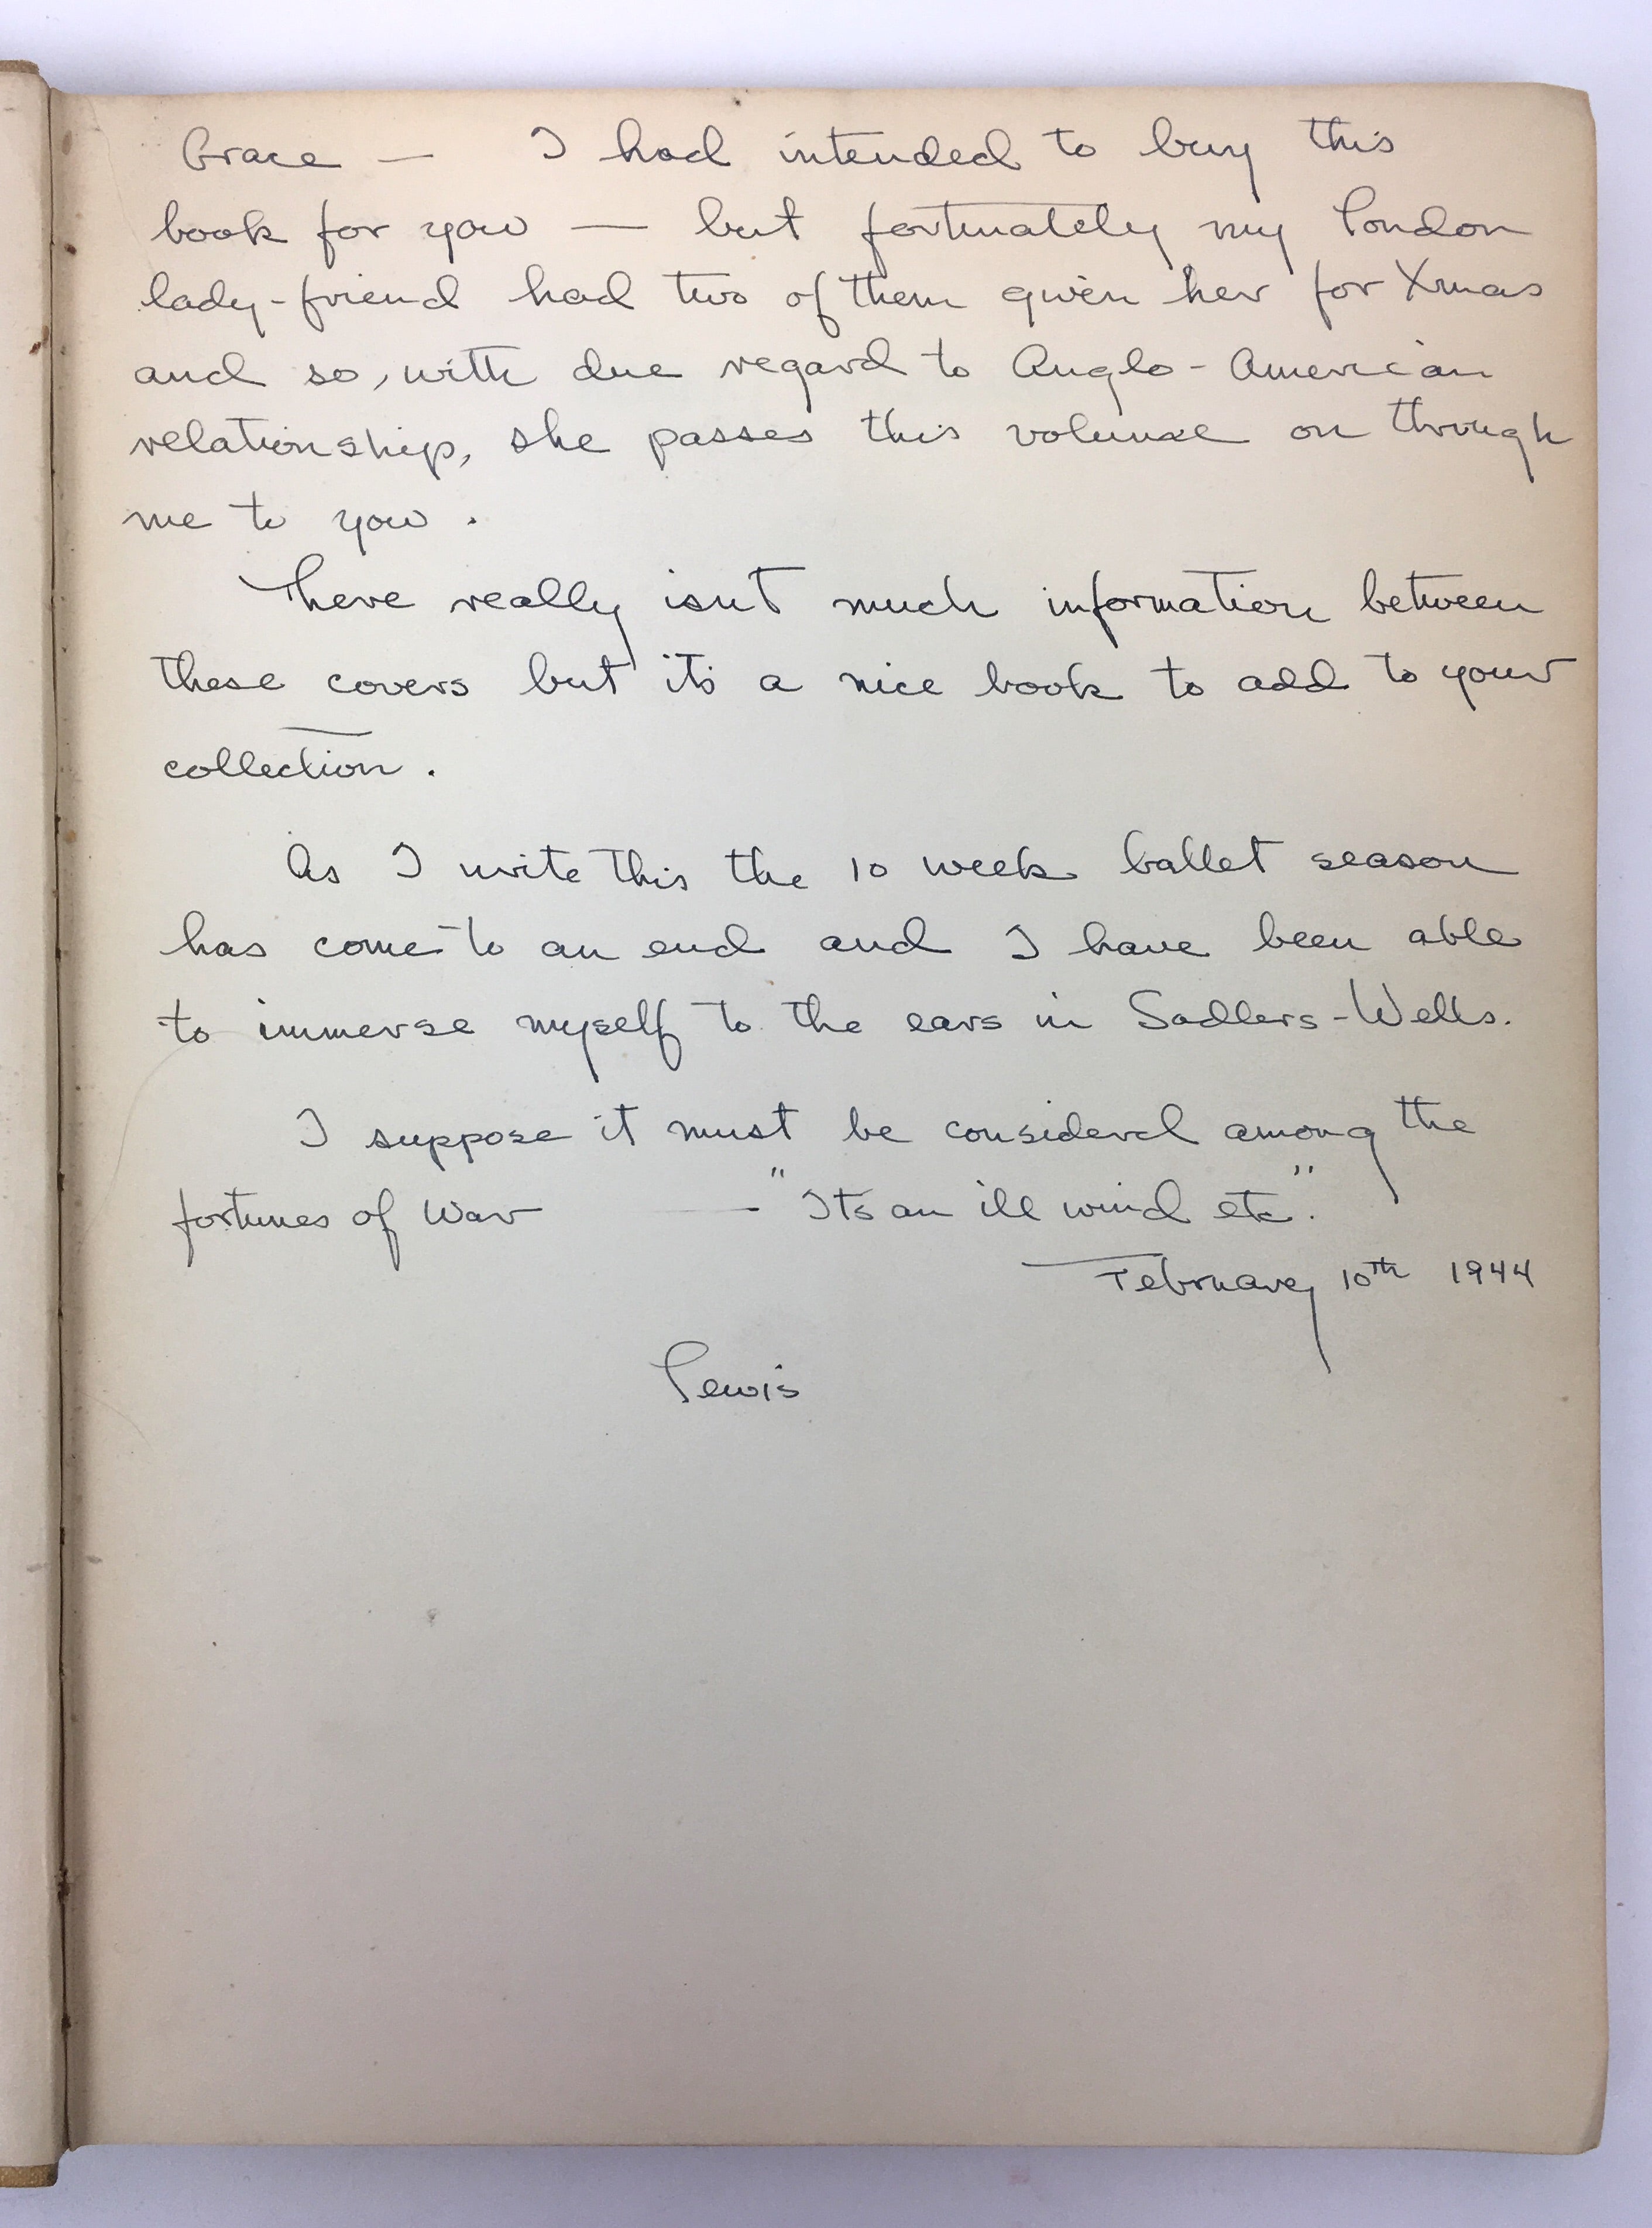 Grace — I had intended to buy this
book for you — but fortunately my London
lady-friend had two of them given her for Xmas
and so, with due regard to Anglo-American
relationship, she passes this volume on through
me to you.
There really isn't much information between
these covers but it's a nice book to add to your
collection.
As I write this the 10 week ballet season
has come to an end and I have been able
to immerse myself to the ears in Sadlers-Wells.
I suppose it must be considered among the
fortunes of War — "Its an ill wind etc".
February 10th 1944
Lewis